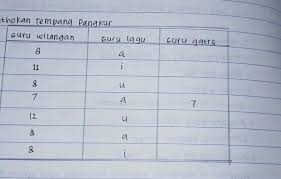 thokan Tembang Pangkur
Guru wilangan Guru lagu Guru gatra
8 a
11 i
8 u
7 a 7
12 u
8 a
8 i